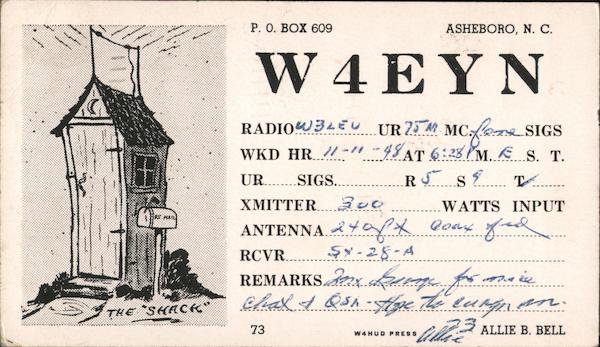 P. O. BOX 609 ASHEBORO, N. C.
W4EYN
RADIO W3LEV UR 75M MC. fone SIGS
WKD HR 11-11-48 AT 6:28 P M. E S. T.
UR SIGS. R 5 S 9 T
XMITTER 300 WATTS INPUT
ANTENNA 240 ft coax fed
RCVR SX-28-A
REMARKS Tnx for nice
Chat & QSO - Hpe to cuagn
73 73 ALLIE B. BELL
Allie
W4HUD PRESS
US MAIL
THE "SHACK"